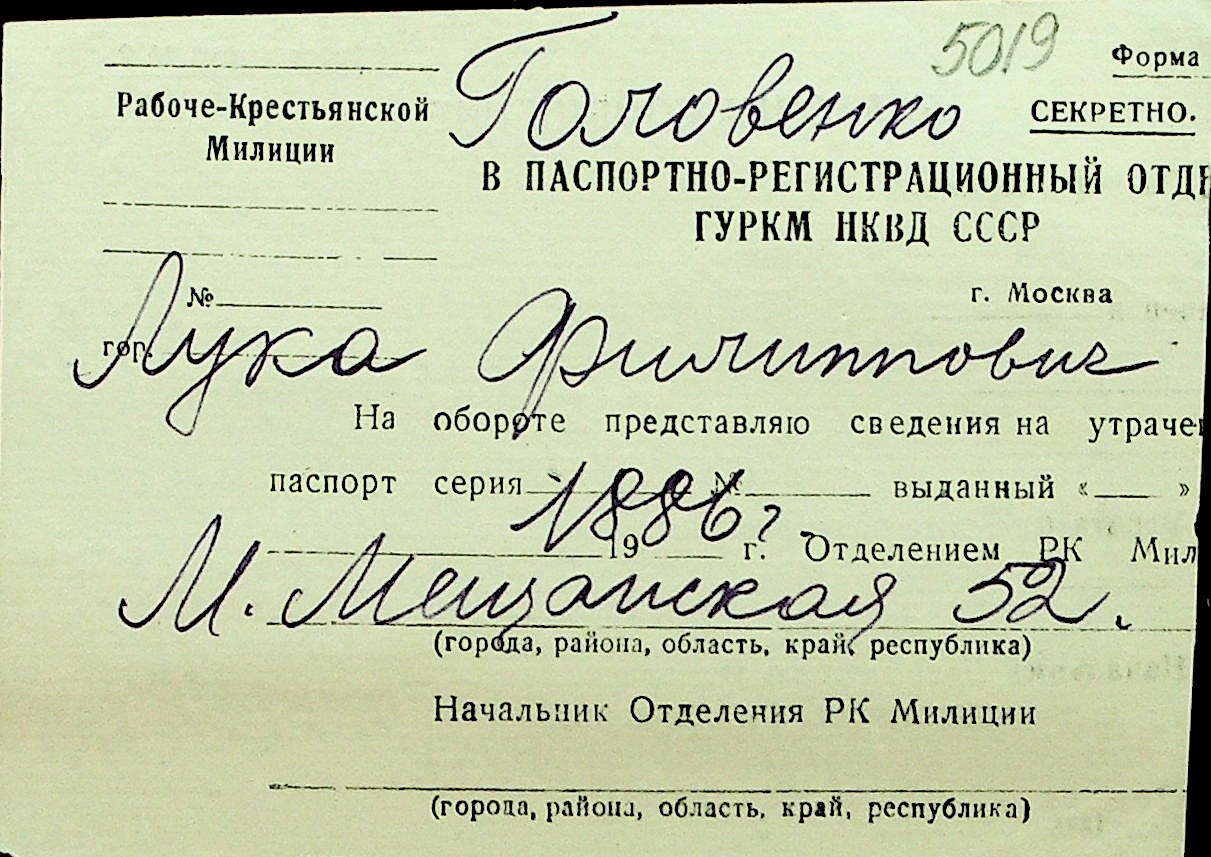 5019
Форма
Головенко
Рабоче-Крестьянской
Милиции
СЕКРЕТНО.
В ПАСПОРТНО-РЕГИСТРАЦИОННЫЙ ОТДЕ
ГУРКМ НКВД СССР
№
г. Москва
гор.
Лука Филиппович
На обороте представляю сведения на утрачен
паспорт серия № выданный « »
1886 г.
19 г. Отделением РК Мил
М. Мещанская 52.
(города, района, область, край, республика)
Начальник Отделения РК Милиции
(города, района, область, край, республика)